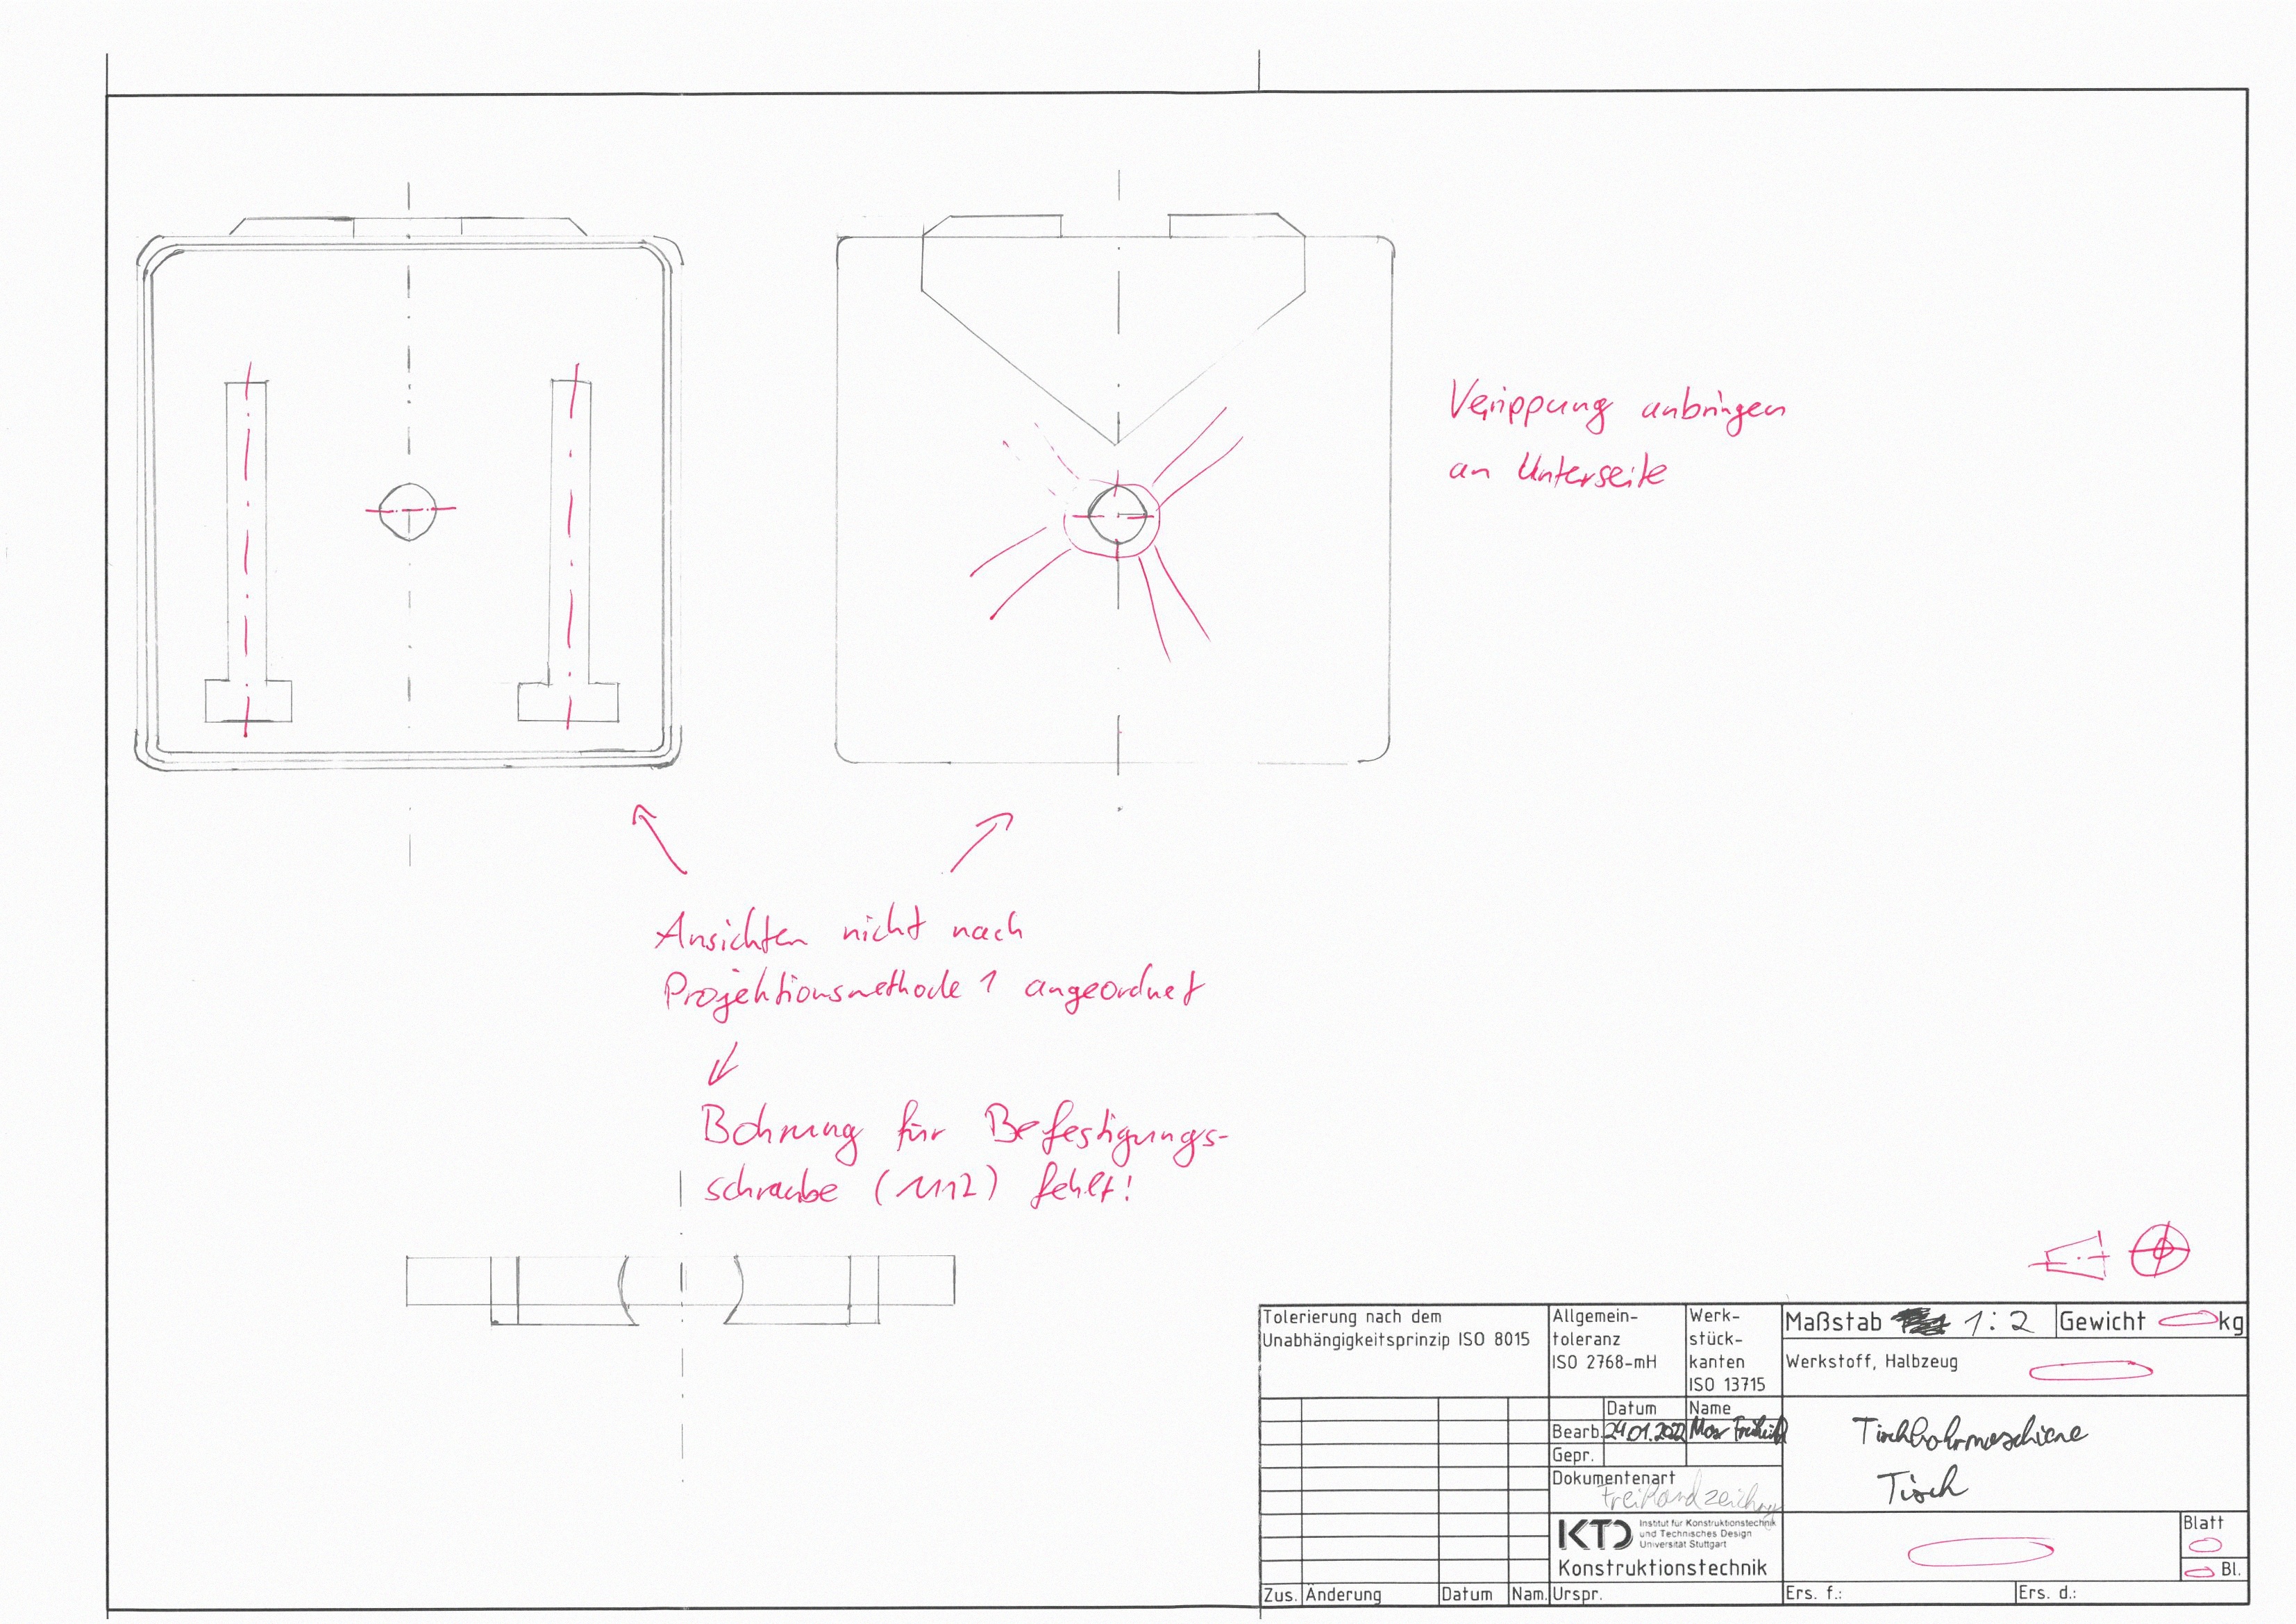 Verrippung anbringen
an Unterseite
Ansichten nicht nach
Projektionsmethode 1 angeordnet
Bohrung für Befestigungs-
schraube (M12) fehlt!
Tolerierung nach dem
Unabhängigkeitsprinzip ISO 8015
Allgemein-
toleranz
ISO 2768-mH
Werk-
stück-
kanten
ISO 13715
Maßstab 1:2
Gewicht kg
Werkstoff, Halbzeug
Datum Name
Bearb. 24.01.2022
Gepr.
Dokumentenart
Freihandzeichnung
Tischbohrmaschine
Tisch
KTD Institut für Konstruktionstechnik
und Technisches Design
Universität Stuttgart
Konstruktionstechnik
Blatt
Bl.
Zus. Änderung Datum Nam. Urspr. Ers. f.: Ers. d.: